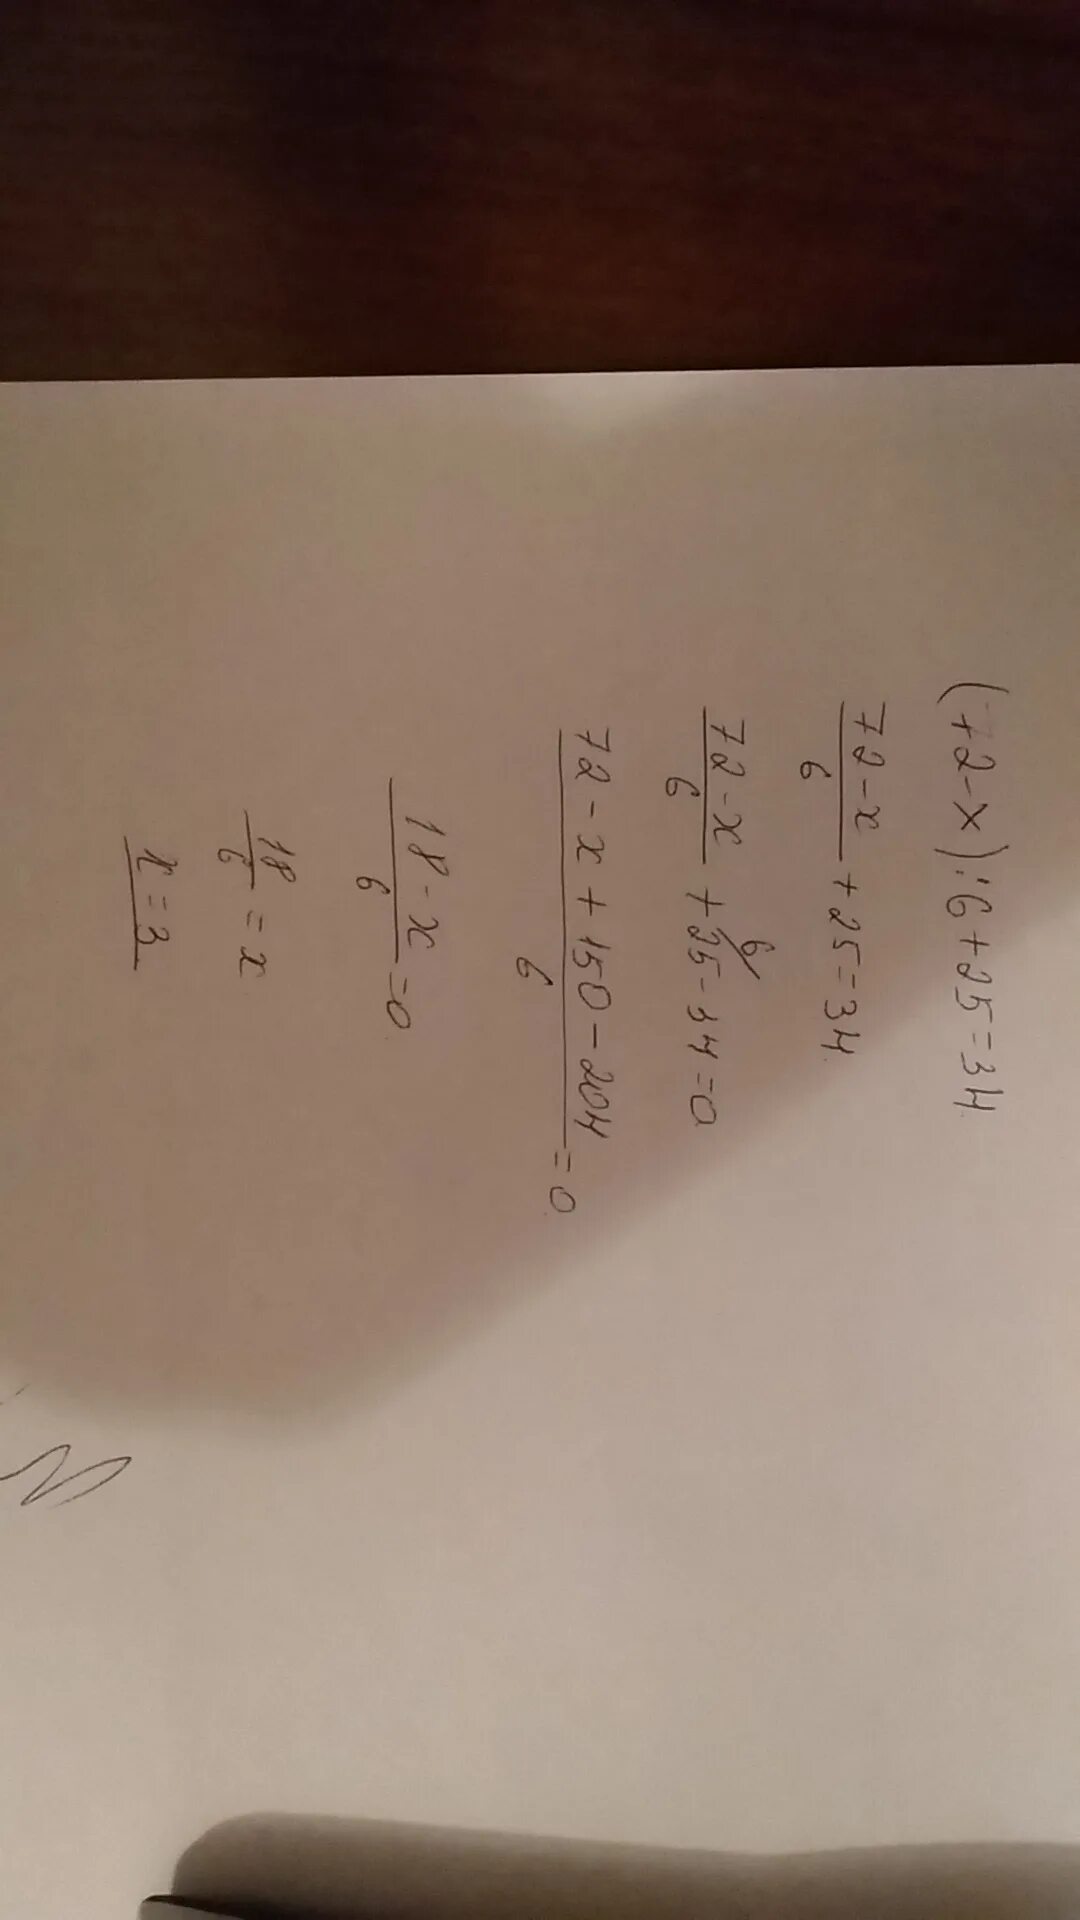 (72-x):6+25=34
72-x/6 +25=34
72-x/6 + 25 6/ - 34 = 0
72-x+150-204/6 = 0
18-x/6 = 0
18/6 = x
x=3